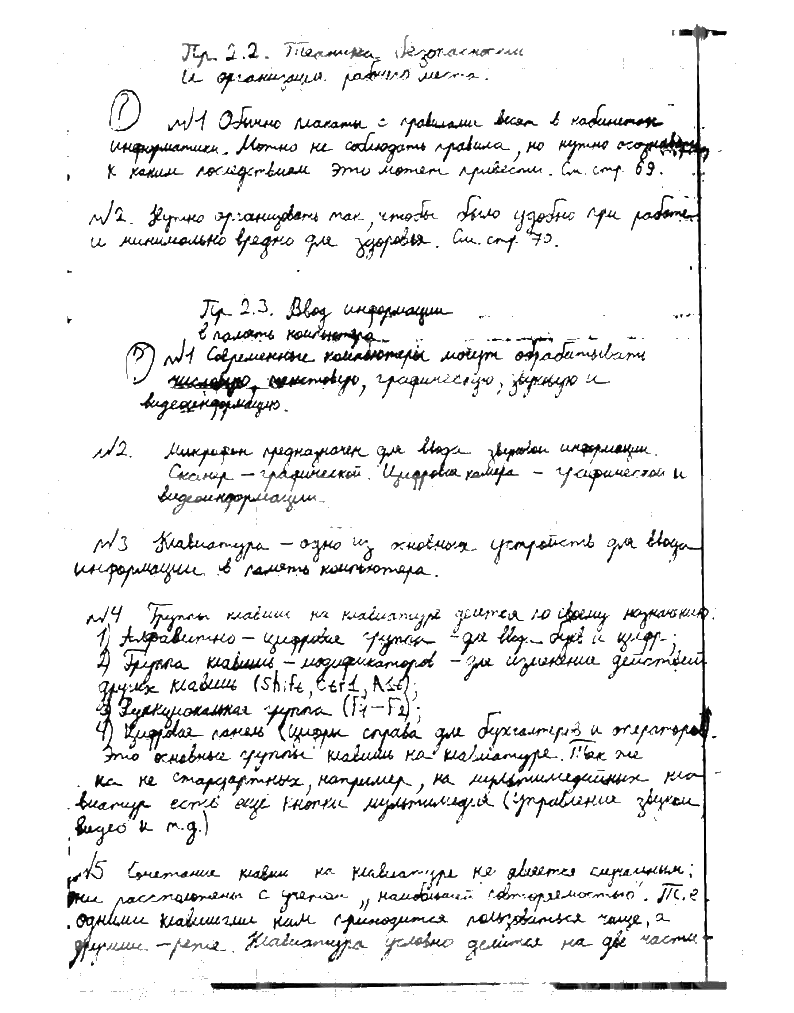 Пр 2.2. Техника безопасности
и организация рабочего места.
? №1 Обычно плакаты с правилами висят в кабинетах
информатики. Можно не соблюдать правила, но нужно
к каким последствием это может привести. См. стр. 69.
№2. Нужно организовать так, чтобы было удобно при работе
и минимально вредно для здоровья. См. стр. 70.
Пр 2.3. Ввод информации
в память компьютера
? №1 Современные компьютеры могут обрабатывать
числовую, текстовую, графическую, звуковую и
видеоинформацию.
№2. Микрофон предназначен для ввода звуковой информации.
Сканер – графической. Цифровая камера – графической и
видеоинформации.
№3 Клавиатура – одно из основных устройств для ввода
информации в память компьютера.
№4 Группы клавиш на клавиатуре делятся по своему назначению:
1) Алфавитно – цифровая группа – для ввода букв и цифр;
2) Группа клавишь – модификаторов – для изменение действий
других клавишь (Shift, Ctrl, Alt);
3) Функциональная группа (F1 – F12);
4) Цифровая панель (цифры справа для бухгалтеров и операторов).
Это основные группы клавишь на клавиатуре. Так же
на не стандартных, например, на мультимедийных кла-
виатур есть ещё кнопки мультимедия (управление звуком,
видео и т.д.)
№5 Сочетание клавиш на клавиатуре не является случайным;
они расположены с учетом „наибольшей повторяемостью". Т.е.
одними клавишами нам приходится пользоваться чаще, а
другими – реже. Клавиатура условно делится на две части –